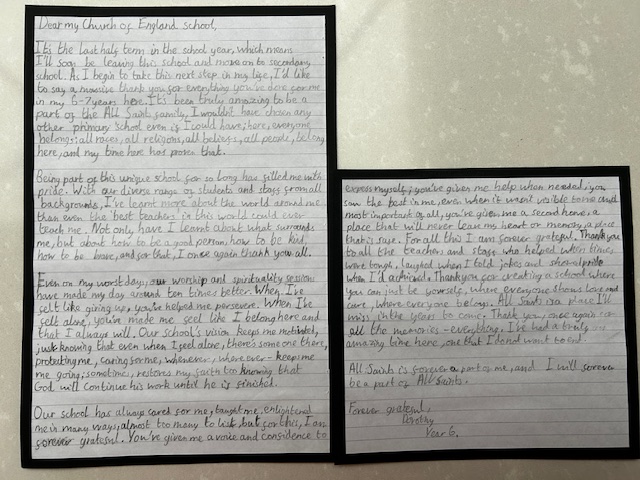 Dear my Church of England School,
It's the last half term in the school year, which means
I'll soon be leaving this school and move on to secondary
school. As I begin to take this next step in my life, I'd like
to say a massive thank you for everything you've done for me
in my 6-7 years here. It's been truly amazing to be a
part of the All Saints family, I wouldn't have chosen any
other primary school even if I could have; here, everyone
belongs: all races, all religions, all beliefs, all people, belong
here, and my time here has proven that.
Being part of this unique school for so long has filled me with
pride. With our diverse range of students and staff from all
backgrounds, I've learnt more about the world around me
than even the best teachers in this world could ever
teach me. Not only have I learnt about what surrounds
me, but about how to be a good person, how to be kind,
how to be brave, and for that, I once again thank you all.
Even on my worst days, our worship and spirituality sessions
have made my day around ten times better. When I've
felt like giving up, you've helped me persevere. When I've
felt alone, you've made me feel like I belong here and
that I always will. Our School's vision keeps me motivated,
just knowing that even when I feel alone, there's some one there,
protecting me, caring for me, whenever, where ever - keeps me
me going; sometimes, restores my faith too knowing that
God will continue his work until he is finished.
Our school has always cared for me, taught me, enlightened
me in many ways, almost too many to list, but for this, I am
forever grateful. You've given me a voice and confidence to
express myself; you've given me help when needed, you
saw the best in me, even when it wasn't visible to me and
most important of all, you've given me a second home, a
place that will never leave my heart or memory, a place
that is safe. For all this I am forever grateful. Thank you
to all the teachers and staff who helped when times
were tough, laughed when I told jokes and showed pride
when I achieved. Thank you for creating a school where
you can just be yourself, where everyone shows love and
care, where everyone belongs. All Saints is a place I'll
miss in the years to come. Thank you, once again for
all the memories - everything. I've had a truly
amazing time here, one that I do not want to end.
All Saints is forever a part of me, and I will forever
be a part of All Saints.
Forever grateful,
Dorothy
Year 6.